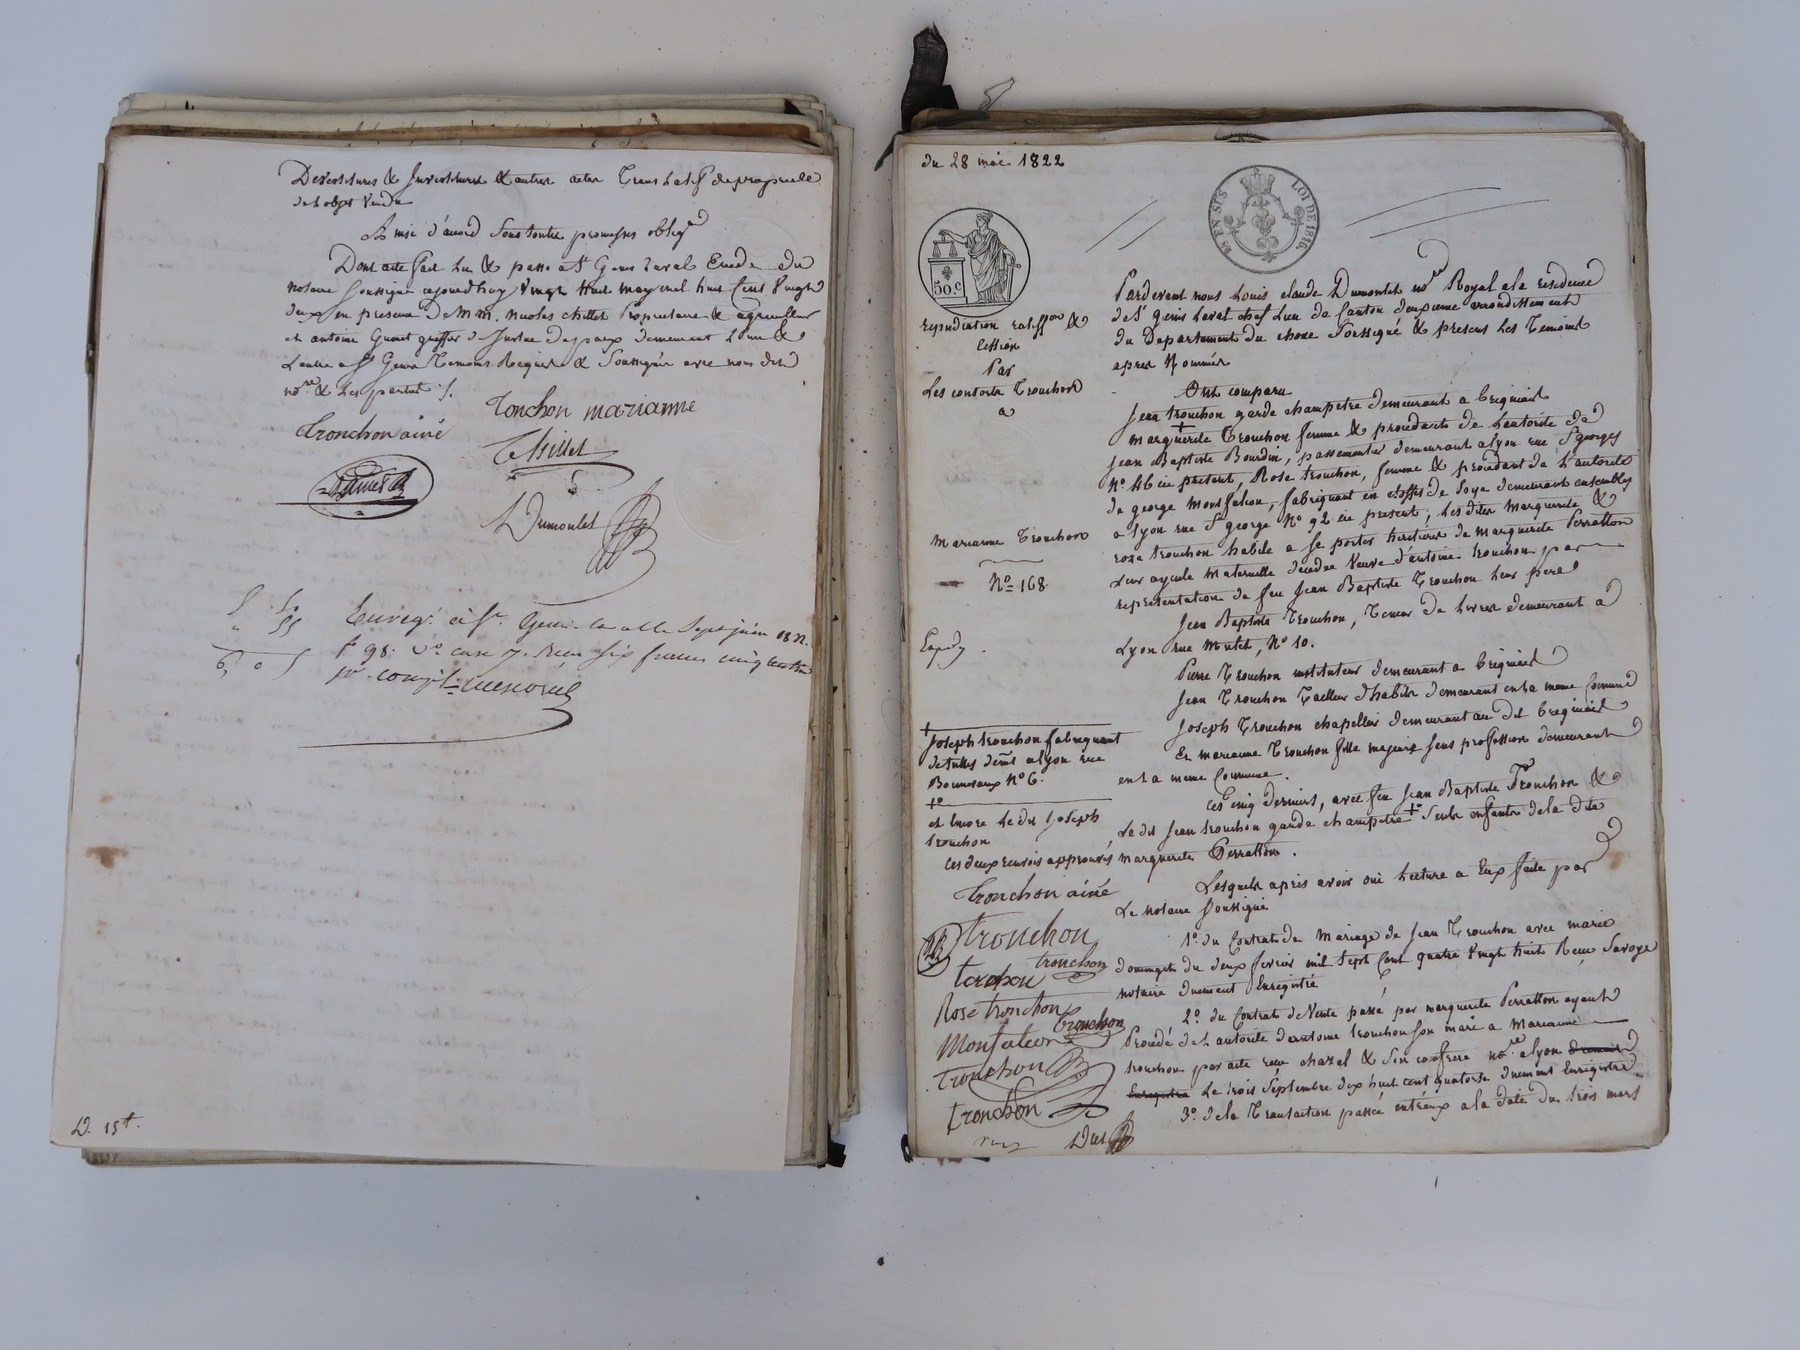 Devestitures & Investitures & autres actes Translatifs de propriete
de l objet Vendu
A mie d'acord Sous toutes promesses obligon
Dont acte fait Lu & passé a St Genis Laval Etude du
notaire soussigné aujourdhuy Vingt huit may mil huit Cent Vingt
deux en presence de MM. nicolas chillet Proprietaire & agriculteur
et antoine Gumet greffier de Justice de paix demeurant L'un &
L'autre a St Genis Temoins Requis & Soussignés avec nous dit
nore & Les parties ./.
Tronchon marianne
Tronchon ainé
Chillet
Dumontet
Enreg. à St Genis le sept juin 1822.
fo 98. vo case 7. Reçu six francs cinq centimes
D. 15t.
du 28 mai 1822
RF EN SUS LOI DE 1816.
50.c
repudiation ratiffon &
Cession
Par
Les consorts Tronchon
a
Marianne Tronchon
No 168
Expdy.
+
Joseph tronchon fabriquant
de tulles demt a Lyon rue
Bourneaux No 6.
+o
et encore Le dit Joseph
tronchon
Ces deux renvois approuvés
Tronchon ainé
tronchon
tronchon
tronchon
Rose tronchon
tronchon
Monfalcon
tronchon
tronchon
Dut
Pardevant nous Louis claude Dumontet nore Royal a la residence
de St genis Laval chef Lieu de Canton deuxieme arrondissement
du Departement du rhone Soussigné & presens Les Temoins
apres Nommés
Ont comparu
Jean tronchon garde champetre demeurant a brignais
+
marguerite Tronchon femme & procedante de L'autorité de
Jean Baptiste Bourdin, passementier demeurant a Lyon rue St georges
No. 46 ici present, Rose tronchon, femme & procedant de L'autorité
de george Monfalcon, fabriquant en etoffes de soye demeurant ensembles
a Lyon rue St george No 92 ici present; Les dites marguerite &
roze tronchon habile a se porter heritieres de marguerite Perratton
Leur ayeule Maternelle decedee Veuve d'antoine tronchon par
representation de feu Jean Baptiste Tronchon Leur pere
Jean Baptiste Tronchon, Teneur de Livres demeurant a
Lyon rue Mulet, No 10.
Pierre Tronchon instituteur demeurant a brignais
Jean Tronchon Tailleur d'habits demeurant en la meme Commune
Joseph Tronchon chapellier demeurant au dit brignais
Et marianne Tronchon fille majeure sans profession demeurant
en la meme Commune.
Ces cinq derniers, avec feu Jean Baptiste Tronchon &
Le dit Jean tronchon garde champetre +o Seuls enfants de la dite
marguerite Perratton.
Lesquels apres avoir oui Lecture a Eux faite par
Le notaire soussigné
1o. du Contrat de Mariage de Jean Tronchon avec marie
du deux fevrier mil sept Cent quatre vingt huit Reçu Savoye
notaire duement Enregistré
2o. du Contrat de Vente passé par marguerite Perratton ayant
Procédé de L autorité dantoine tronchon son mari a Marianne
tronchon par acte reçu chazal & son confrere nore a Lyon
Enregistré Le trois Septembre dix huit cent quatorze duement Enregistré
3o. de la Transaction passée entr'eux a la date du trois mars